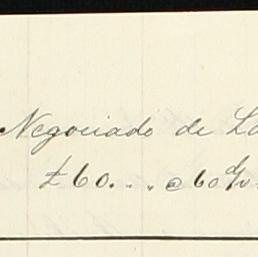 Negociado de La
£60... @ 60 d/v